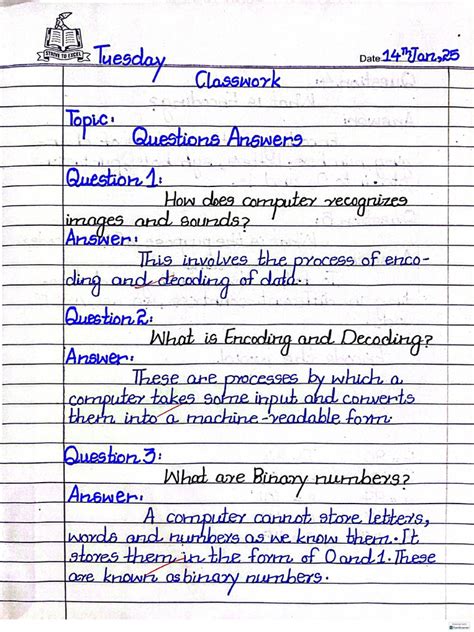 STRIVE TO EXCEL
Tuesday
Date 14th Jan, 25
Classwork
Topic:
Questions Answers
Question 1:
How does computer recognizes
images and sounds?
Answer:
This involves the process of enco-
ding and decoding of data.
Question 2:
What is Encoding and Decoding?
Answer:
These are processes by which a
computer takes some input and converts
them into a machine-readable form
Question 3:
What are Binary numbers?
Answer:
A computer cannot store letters,
words and numbers as we know them. It
stores them in the form of 0 and 1. These
are known as binary numbers.